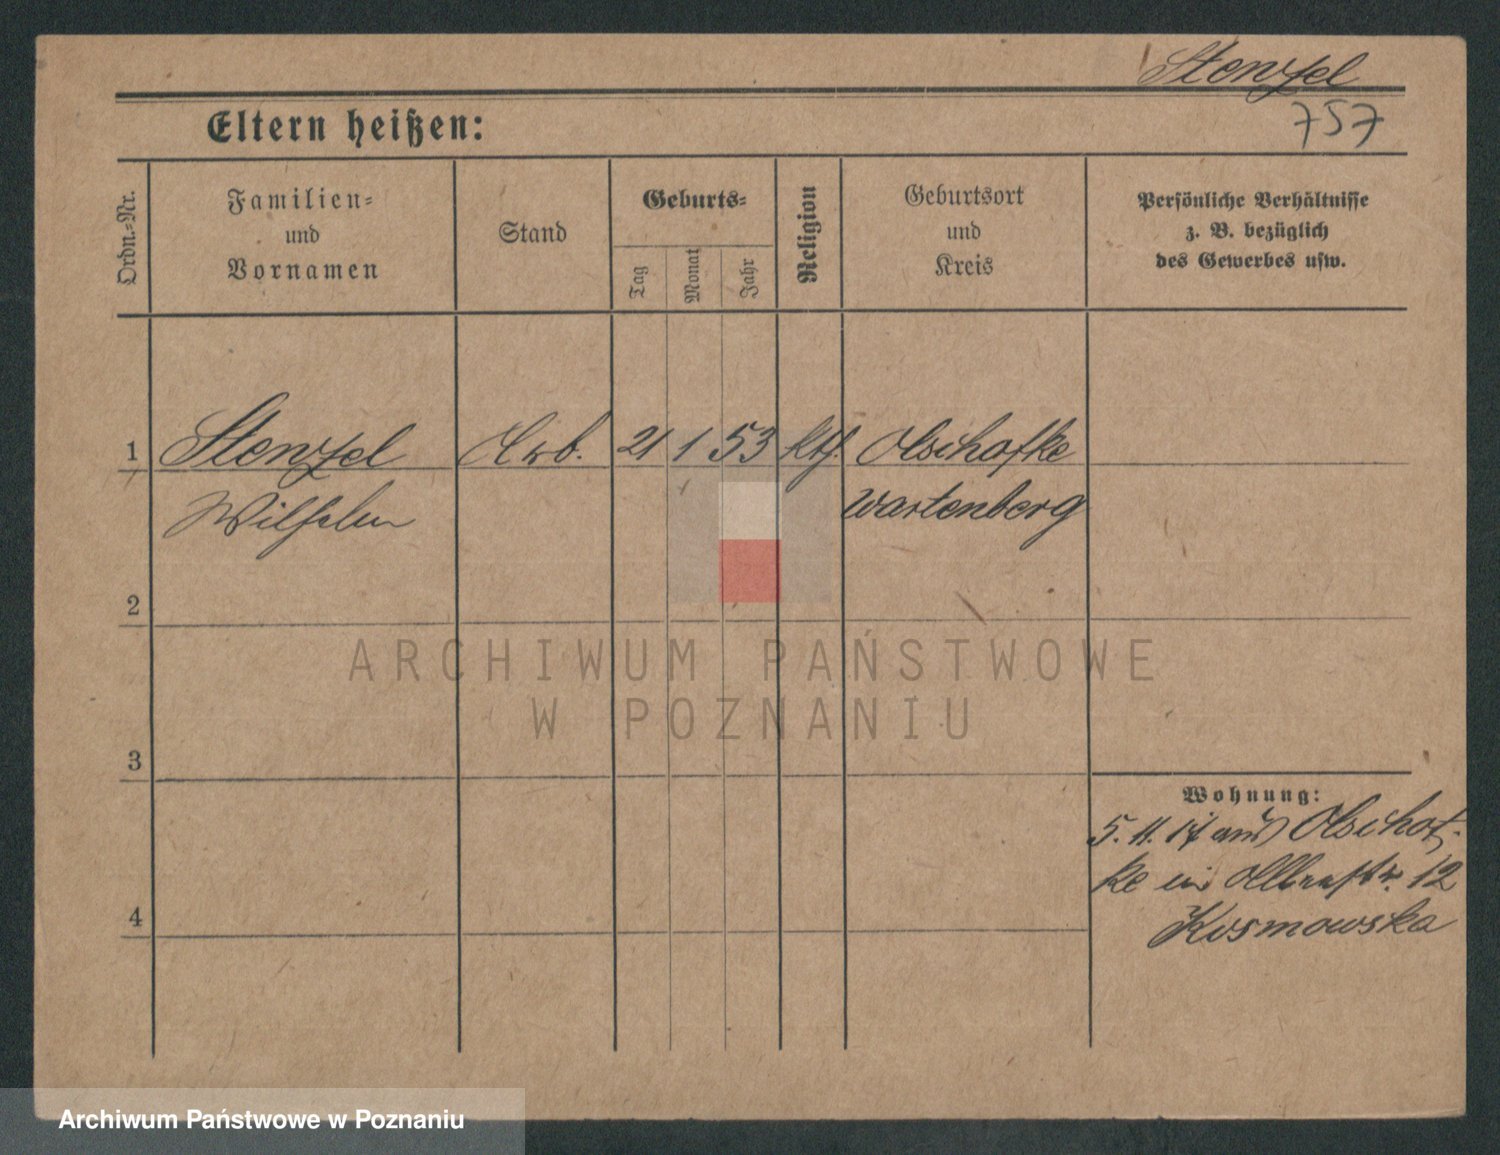 Stenzel
757
Eltern heißen:
Ordn.-Nr.
Familien-
und
Vornamen
Stand
Geburts-
Tag
Monat
Jahr
Religion
Geburtsort
und
Kreis
Persönliche Verhältnisse
z. B. bezüglich
des Gewerbes usw.
1 Stenzel Arb. 21 1 53 kth. Olschofke
Wilhelm Wartenberg
2
3
4
Wohnung:
5.11.17 aus Olschof-
ke in 12
Kosmowska
ARCHIWUM PAŃSTWOWE
W POZNANIU
Archiwum Państwowe w Poznaniu